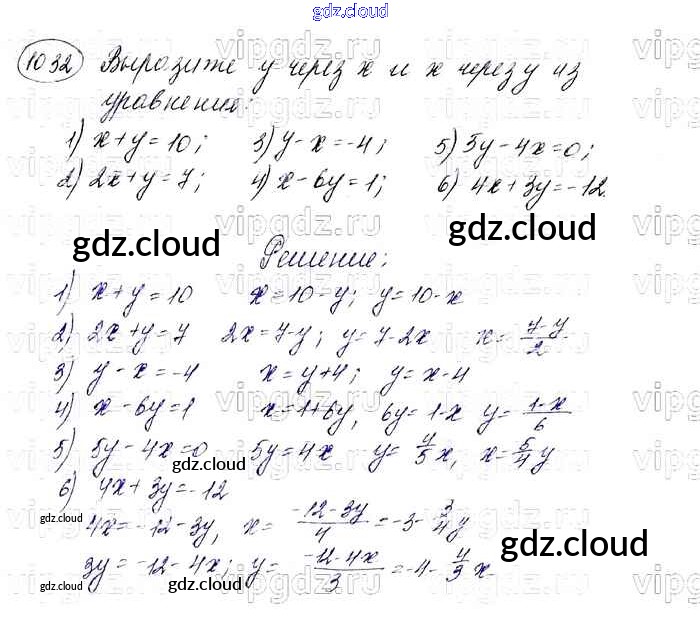 gdz.cloud
1032 Выразите y через x и x через y из
уравнения:
1) x+y=10; 3) y-x=-4; 5) 5y-4x=0;
2) 2x+y=7; 4) x-6y=1; 6) 4x+3y=-12.
gdz.cloud gdz.cloud
Решение:
1) x+y=10 x=10-y; y=10-x
2) 2x+y=7 2x=7-y; y=7-2x x=\frac{7-y}{2}
3) y-x=-4 x=y+4; y=x-4
4) x-6y=1 x=1+6y, 6y=1-x y=\frac{1-x}{6}
5) 5y-4x=0 5y=4x y=\frac{4}{5}x, x=\frac{5}{4}y
gdz.cloud
6) 4x+3y=-12
gdz.cloud
4x=-12-3y, x=\frac{-12-3y}{4}=-3-\frac{3}{4}y
gdz.cloud
3y=-12-4x; y=\frac{-12-4x}{3}=-4-\frac{4}{3}x
gdz.cloud gdz.cloud gdz.cloud